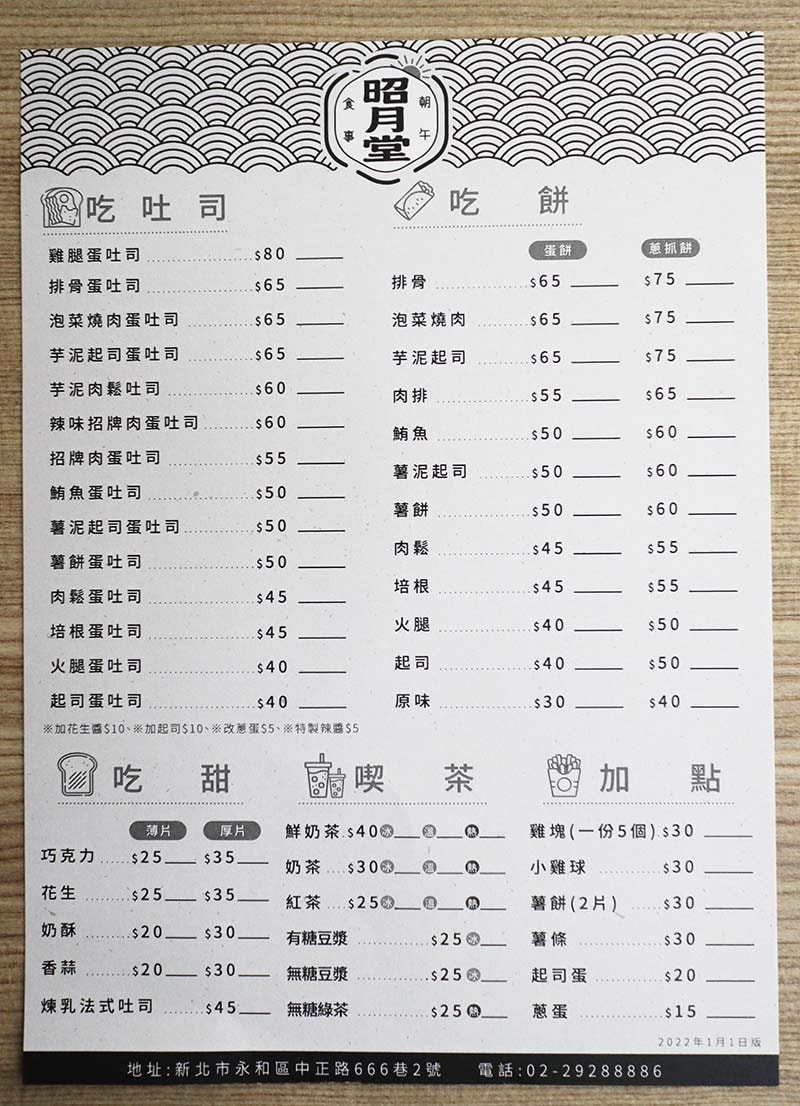 昭月堂
食事
朝午
吃吐司
雞腿蛋吐司 $80
排骨蛋吐司 $65
泡菜燒肉蛋吐司 $65
芋泥起司蛋吐司 $65
芋泥肉鬆吐司 $60
辣味招牌肉蛋吐司 $60
招牌肉蛋吐司 $55
鮪魚蛋吐司 $50
薯泥起司蛋吐司 $50
薯餅蛋吐司 $50
肉鬆蛋吐司 $45
培根蛋吐司 $45
火腿蛋吐司 $40
起司蛋吐司 $40
※加花生醬$10、※加起司$10、※改蔥蛋$5、※特製辣醬$5
吃餅
蛋餅 蔥抓餅
排骨 $65 $75
泡菜燒肉 $65 $75
芋泥起司 $65 $75
肉排 $55 $65
鮪魚 $50 $60
薯泥起司 $50 $60
薯餅 $50 $60
肉鬆 $45 $55
培根 $45 $55
火腿 $40 $50
起司 $40 $50
原味 $30 $40
吃甜
薄片 厚片
巧克力 $25 $35
花生 $25 $35
奶酥 $20 $30
香蒜 $20 $30
煉乳法式吐司 $45
喫茶
鮮奶茶 $40 冰 溫 熱
奶茶 $30 冰 溫 熱
紅茶 $25 冰 溫 熱
有糖豆漿 $25 冰
無糖豆漿 $25 冰
無糖綠茶 $25 熱
加點
雞塊(一份5個) $30
小雞球 $30
薯餅(2片) $30
薯條 $30
起司蛋 $20
蔥蛋 $15
2022年1月1日版
地址:新北市永和區中正路666巷2號 電話:02-29288886